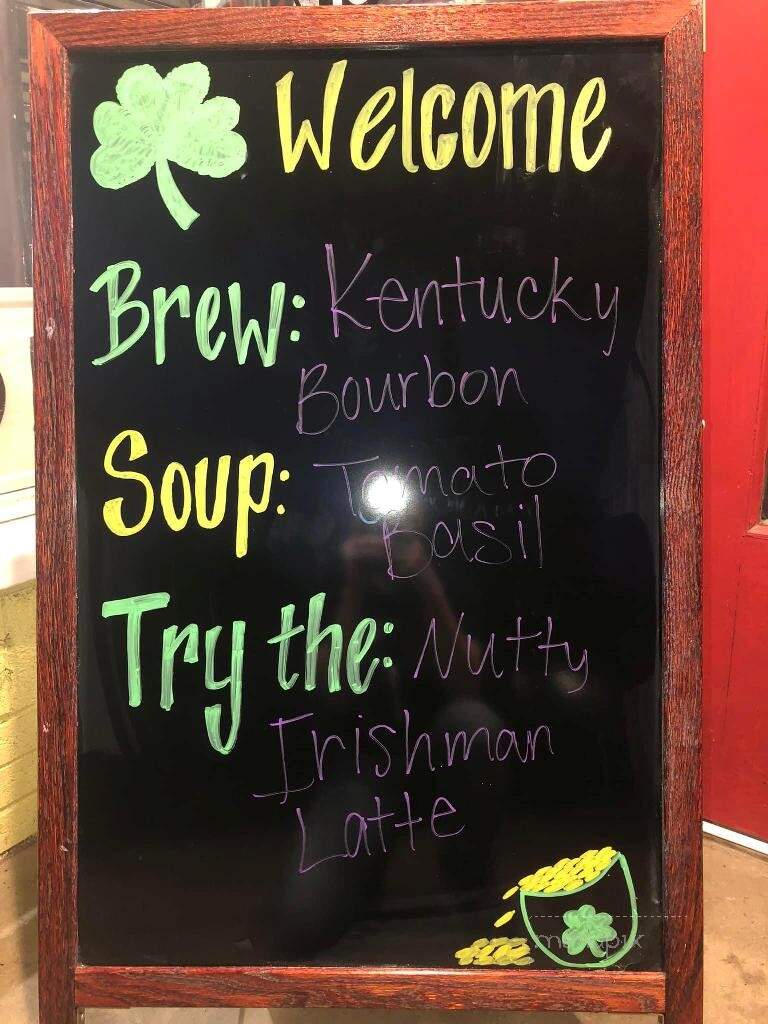 Welcome
Brew: Kentucky
Bourbon
Soup: Tomato
Basil
Try the: Nutty
Irishman
Latte